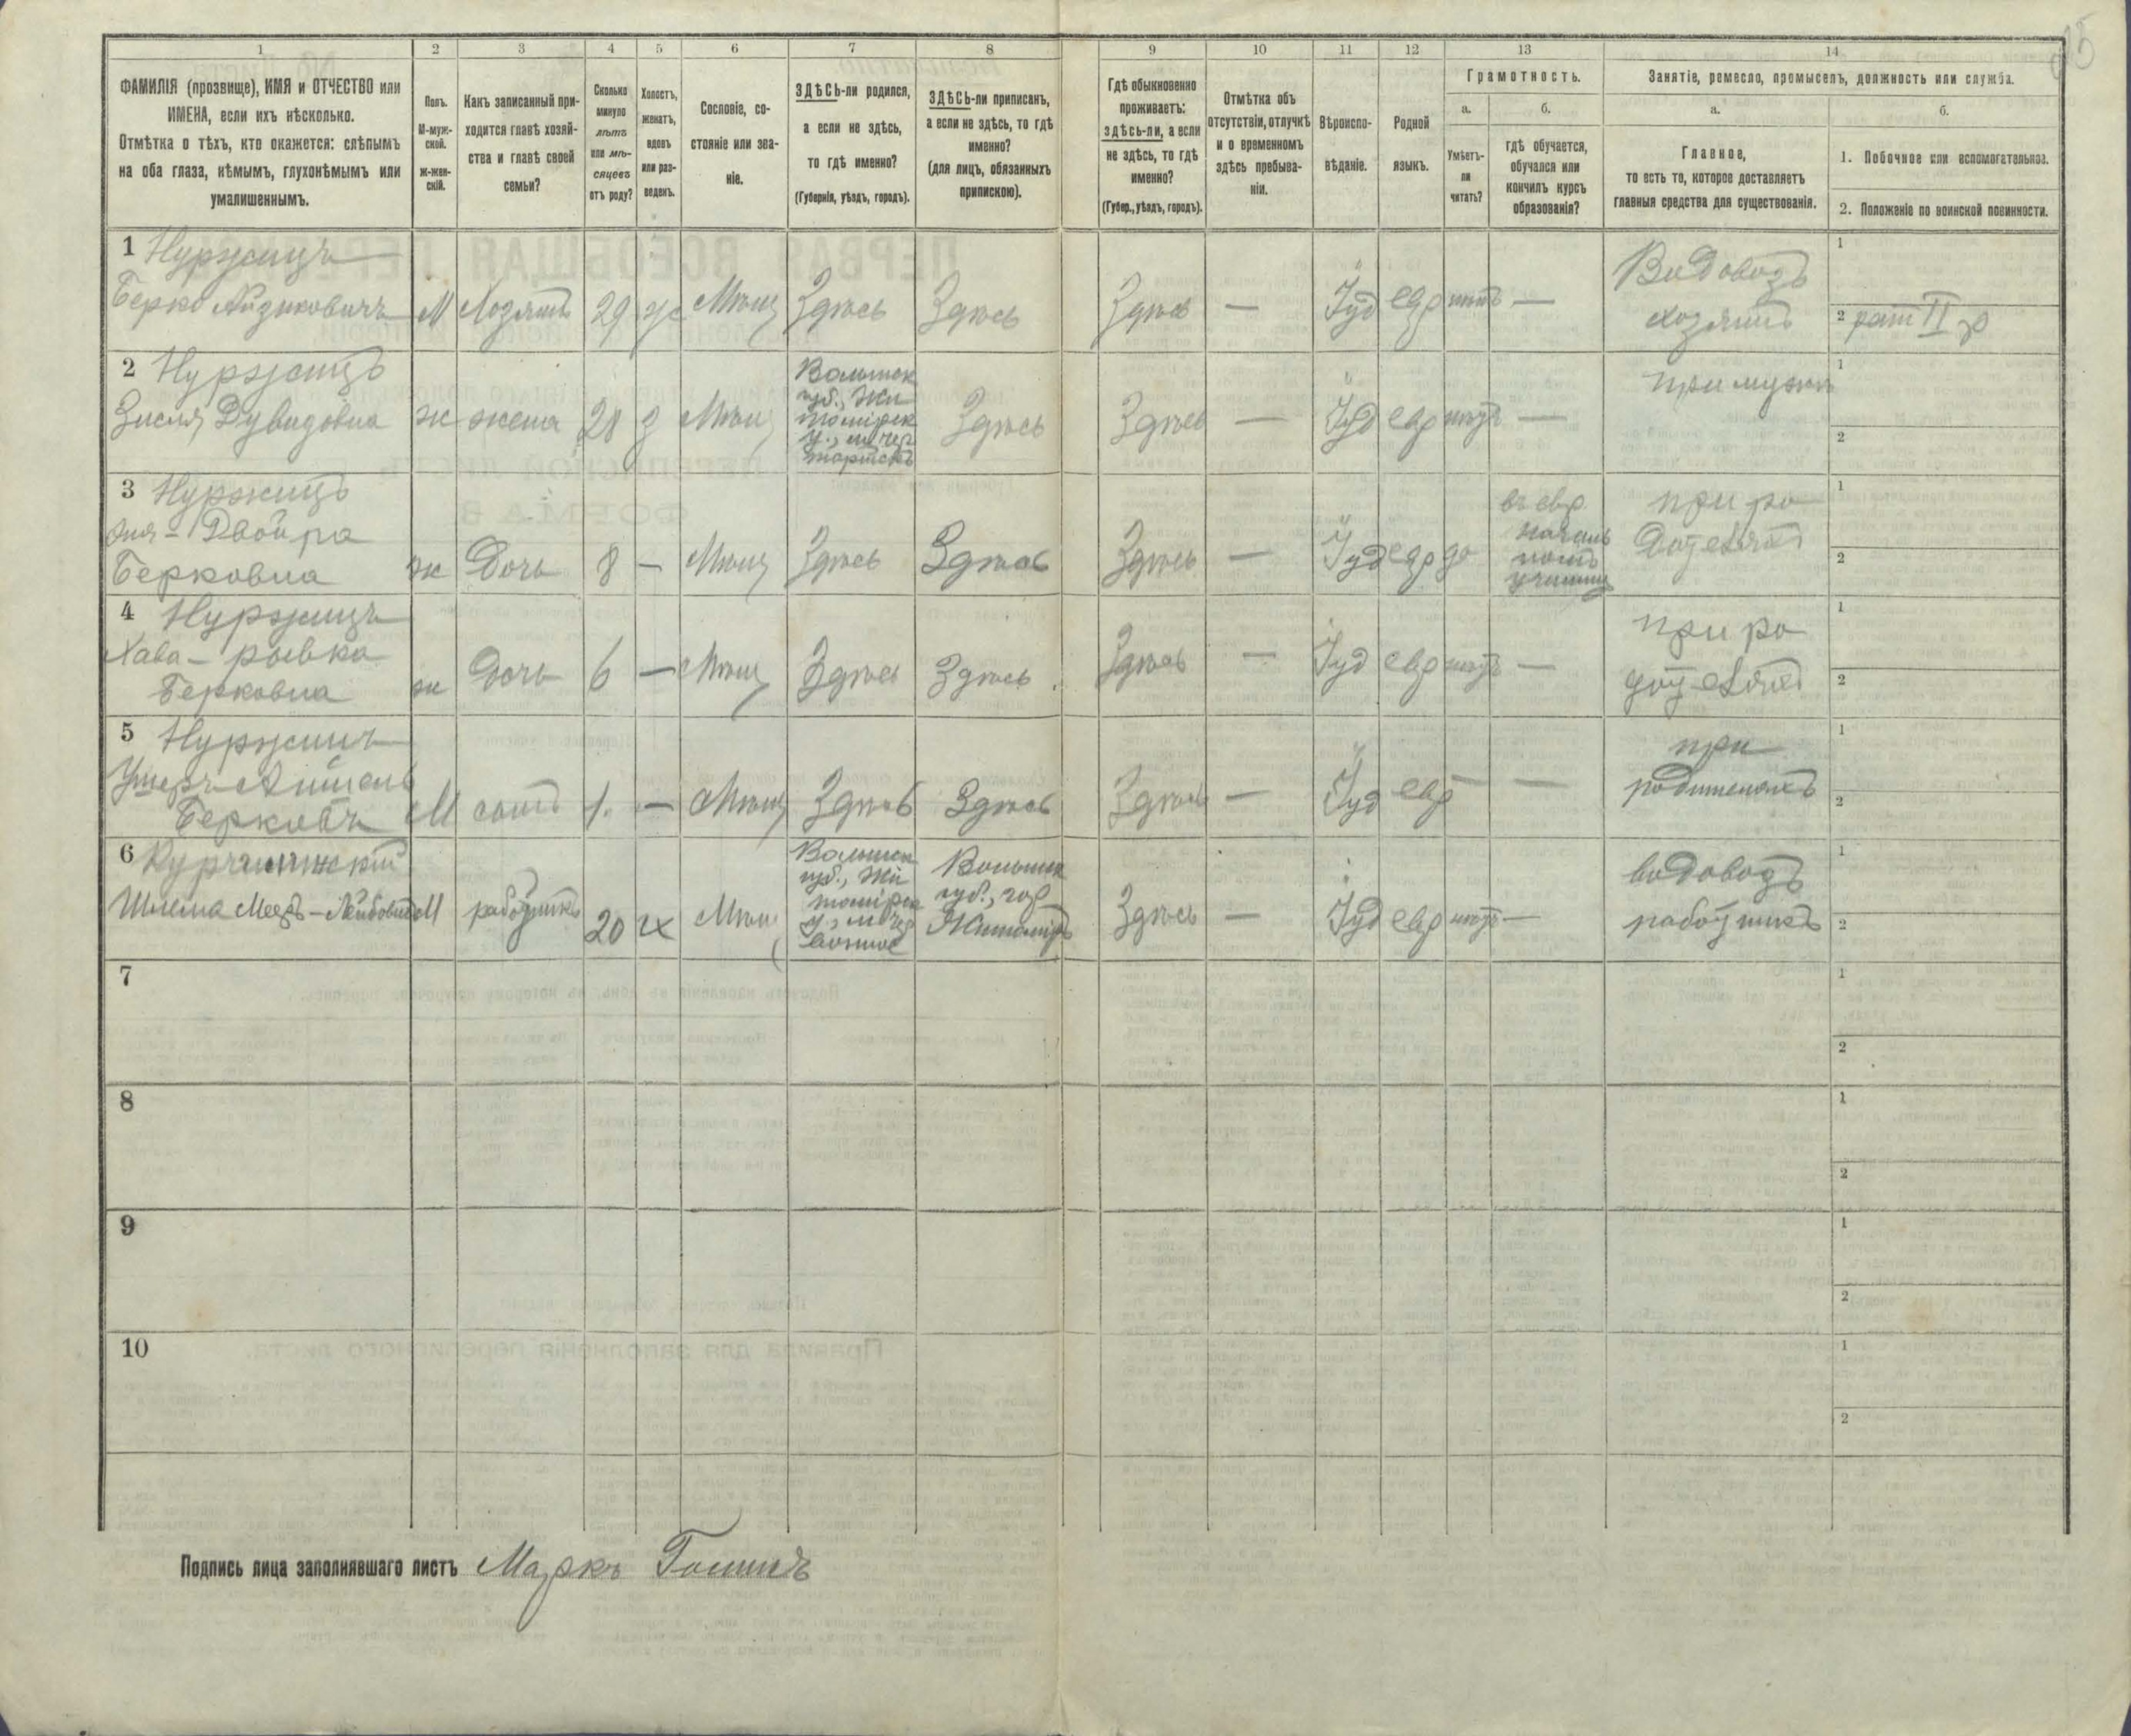 1 2 3 4 5 6 7 8 9 10 11 12 13 14
ФАМИЛІЯ (прозвище), ИМЯ и ОТЧЕСТВО или
ИМЕНА, если ихъ нѣсколько.
Отмѣтка о тѣхъ, кто окажется: слѣпымъ
на оба глаза, нѣмымъ, глухонѣмымъ или
умалишеннымъ.
Полъ.
М-муж-
ской.
ж-жен-
скій.
Какъ записанный при-
ходится главѣ хозяй-
ства и главѣ своей
семьи?
Сколько
минуло
лѣтъ
или мѣ-
сяцевъ
отъ роду?
Холостъ,
женатъ,
вдовъ
или раз-
веденъ.
Сословіе, со-
стояніе или зва-
ніе.
ЗДѢСЬ-ли родился,
а если не здѣсь,
то гдѣ именно?
(Губернія, уѣздъ, городъ).
ЗДѢСЬ-ли приписанъ,
а если не здѣсь, то гдѣ
именно?
(для лицъ, обязанныхъ
припискою).
Гдѣ обыкновенно
проживаетъ:
здѣсь-ли, а если
не здѣсь, то гдѣ
именно?
(Губер., уѣздъ, городъ).
Отмѣтка объ
отсутствіи, отлучкѣ
и о временномъ
здѣсь пребыва-
ніи.
Вѣроиспо-
вѣданіе.
Родной
языкъ.
Грамотность.
а.
Умѣетъ-
ли
читать?
б.
гдѣ обучается,
обучался или
кончилъ курсъ
образованія?
Занятіе, ремесло, промыселъ, должность или служба.
а.
Главное,
то есть то, которое доставляетъ
главныя средства для существованія.
б.
1. Побочное или вспомогательное.
2. Положеніе по воинской повинности.
1 Нуржицъ
Берко Айзиковичъ М Хозяинъ 29 ж Мѣщ Здѣсь Здѣсь Здѣсь — Іуд евр нѣтъ —
Водовозъ
хозяинъ
1
2 рат II р
2 Нуржицъ
Зисля Дувидовна ж жена 28 з Мѣщ
Волынск
губ., Жи
томірск
у., м. Чер
Здѣсь Здѣсь — Іуд евр нѣтъ —
при мужѣ
1
2
3 Нуржицъ
Двойра
Берковна ж Дочь 8 — Мѣщ Здѣсь Здѣсь Здѣсь — Іуд евр да
въ евр
началь
номъ
училищ
при ро
дителяхъ
1
2
4 Нуржицъ
Хава-рывка
Берковна ж Дочь 6 — Мѣщ Здѣсь Здѣсь Здѣсь — Іуд евр нѣтъ —
при ро
дителяхъ
1
2
5 Нуржицъ
Берковъ М сынъ 1. — Мѣщ Здѣсь Здѣсь Здѣсь — Іуд евр — —
при
родителяхъ
1
2
6
Шлема Мееръ-Лейбовъ М работникъ 20 х Мѣщ
Волынск
губ., Жи
томірск
у., м. Чер
Волынск
губ., гор
Житоміръ
Здѣсь — Іуд евр нѣтъ —
водовозъ
работникъ
1
2
7
1
2
8
1
2
9
1
2
10
1
2
Подпись лица заполнявшаго листъ Маркъ